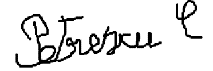 Petrescu C